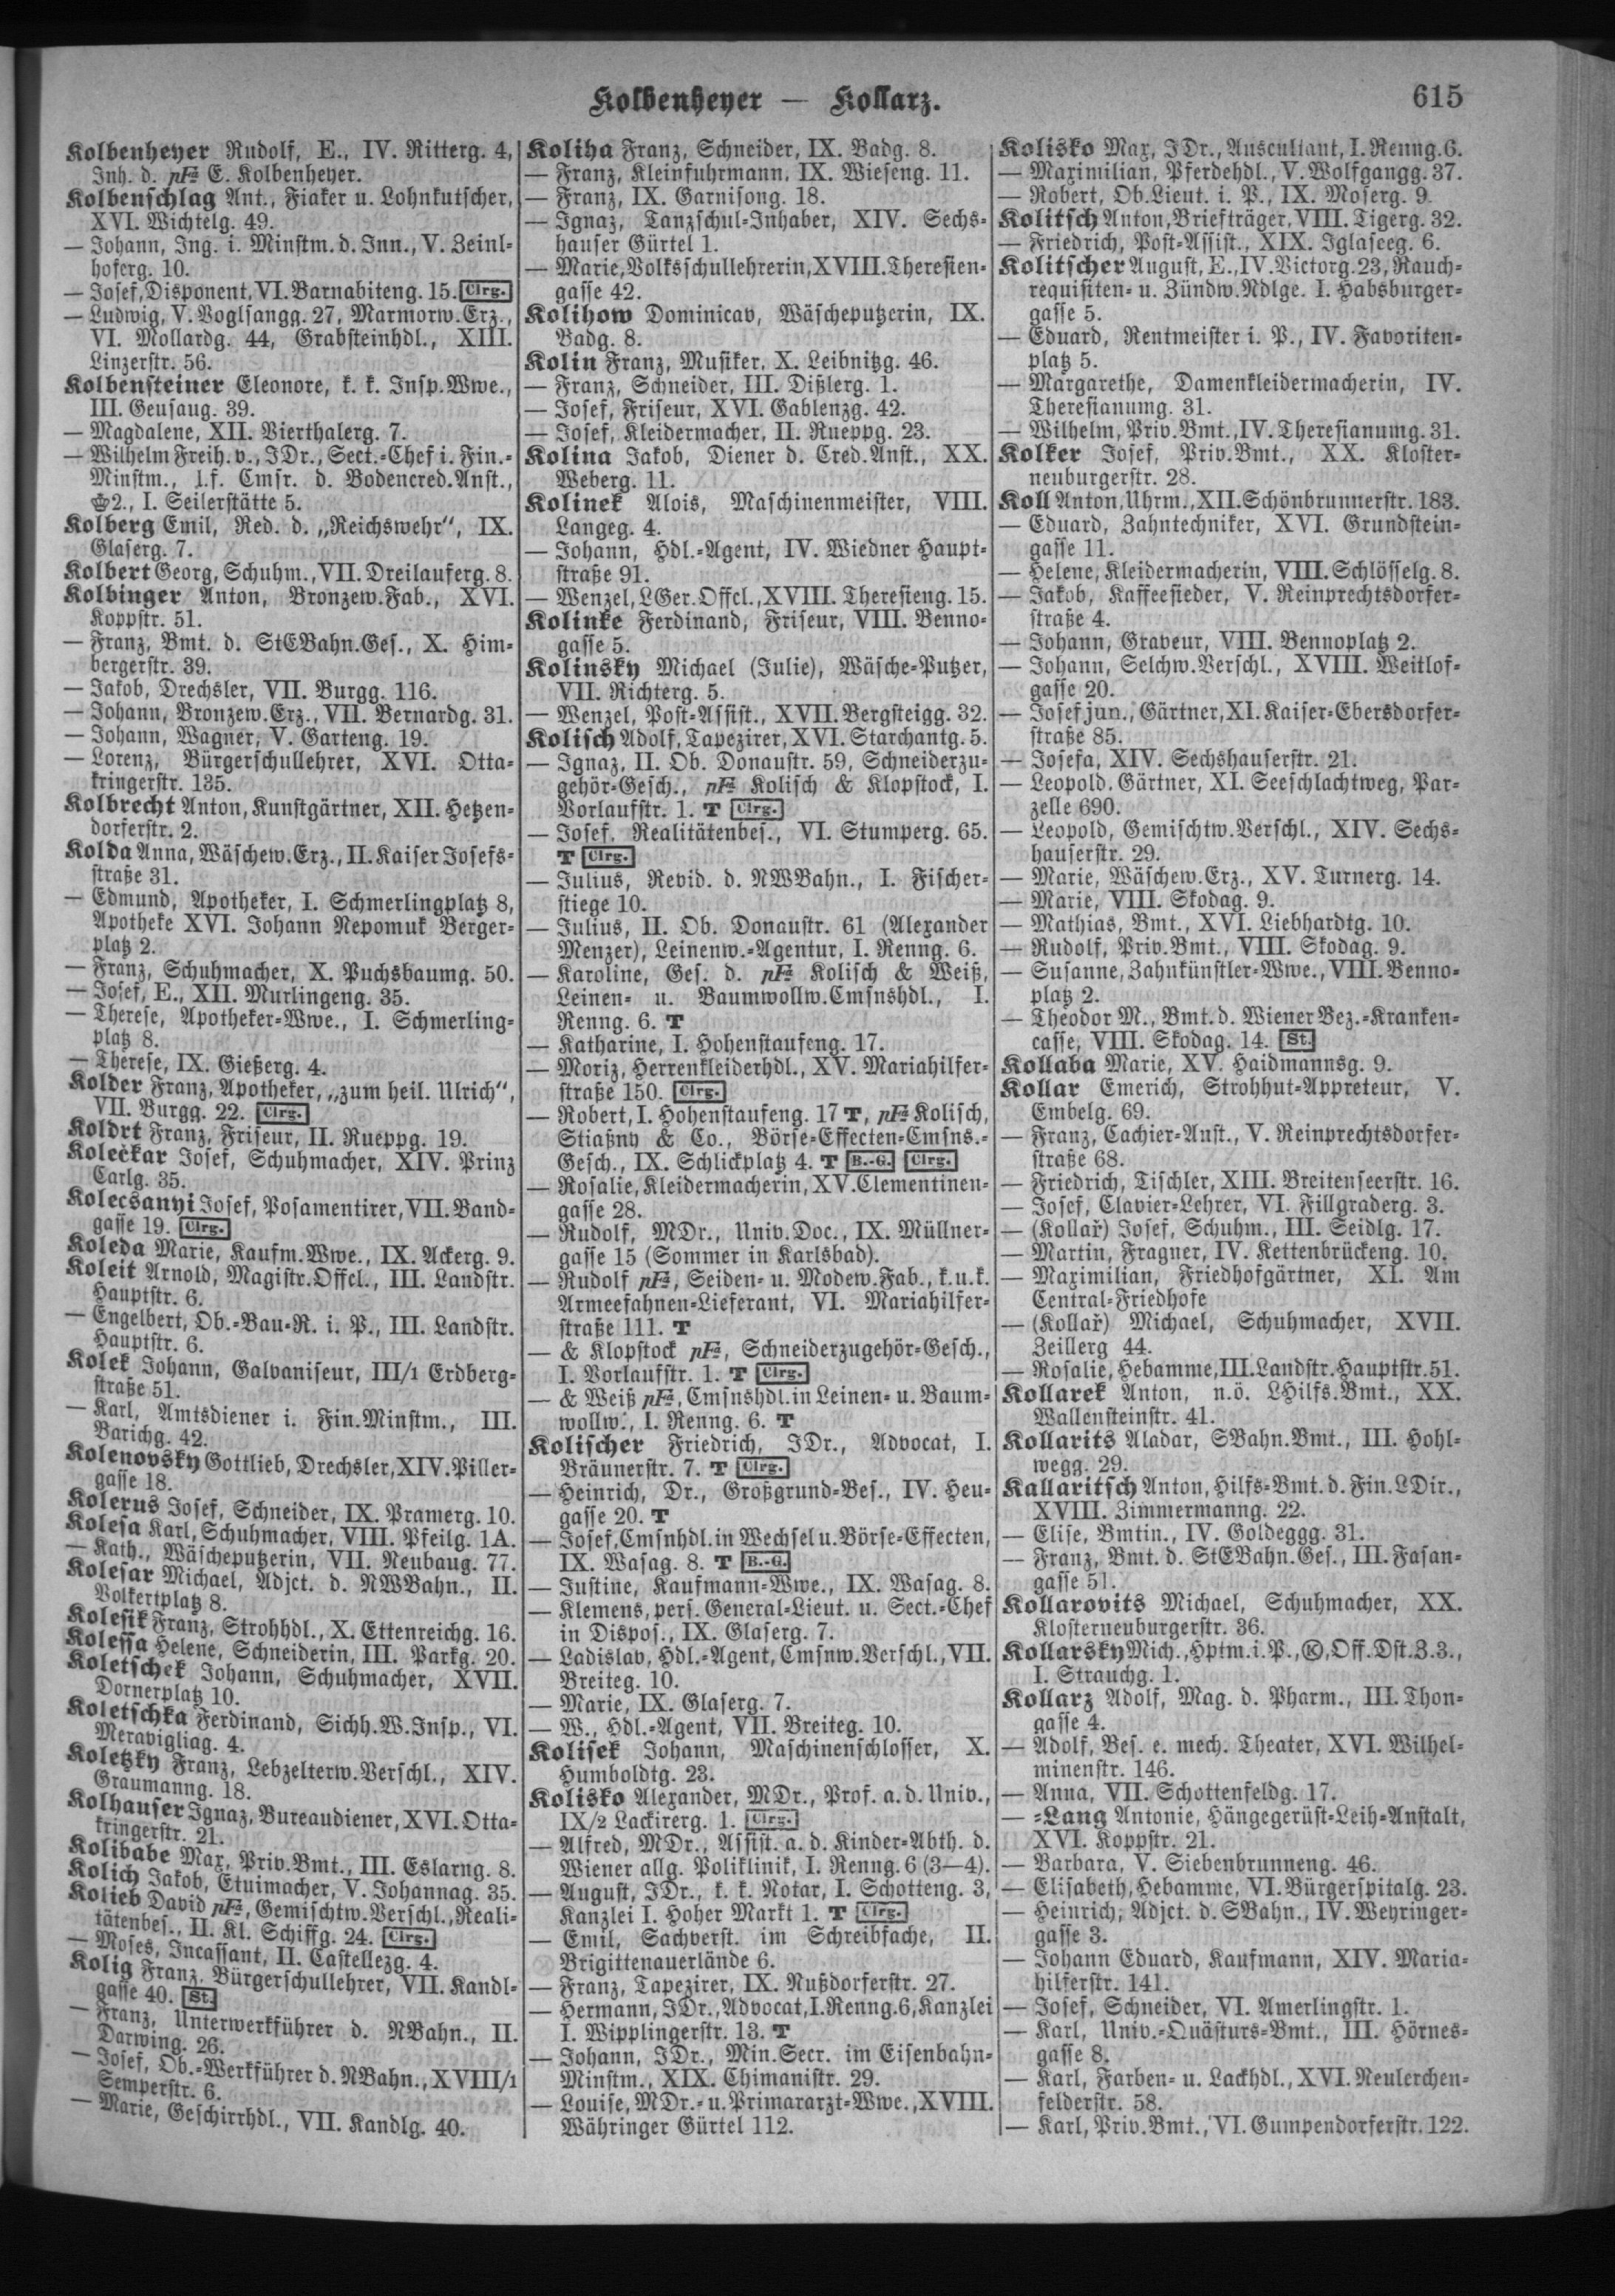 Kolbenheyer — Kollarz.
615
Kolbenheyer Rudolf, E., IV. Ritterg. 4,
Inh. d. pFa E. Kolbenheyer.
Kolbenschlag Ant., Fiaker u. Lohnkutscher,
XVI. Wichtelg. 49.
— Johann, Ing. i. Minstm. d. Inn., V. Zeinl-
hoferg. 10.
— Josef, Disponent, VI. Barnabiteng. 15. Clrg.
— Ludwig, V. Voglsangg. 27, Marmorw.Erz.,
VI. Mollardg. 44, Grabsteinhdl., XIII.
Linzerstr. 56.
Kolbensteiner Eleonore, k. k. Insp.Wwe.,
III. Geusaug. 39.
— Magdalene, XII. Vierthalerg. 7.
— Wilhelm Freih. v., JDr., Sect.-Chef i. Fin.-
Minstm., l.f. Cmsr. d. Bodencred.Anst.,
2., I. Seilerstätte 5.
Kolberg Emil, Red. d. „Reichswehr“, IX.
Glaserg. 7.
Kolbert Georg, Schuhm., VII. Dreilauferg. 8.
Kolbinger Anton, Bronzew.Fab., XVI.
Koppstr. 51.
— Franz, Bmt. d. StEBahn.Ges., X. Him-
bergerstr. 39.
— Jakob, Drechsler, VII. Burgg. 116.
— Johann, Bronzew.Erz., VII. Bernardg. 31.
— Johann, Wagner, V. Garteng. 19.
— Lorenz, Bürgerschullehrer, XVI. Otta-
kringerstr. 135.
Kolbrecht Anton, Kunstgärtner, XII. Hetzen-
dorferstr. 2.
Kolda Anna, Wäschew.Erz., II. Kaiser Josefs-
straße 31.
— Edmund, Apotheker, I. Schmerlingplatz 8,
Apotheke XVI. Johann Nepomuk Berger-
platz 2.
— Franz, Schuhmacher, X. Puchsbaumg. 50.
— Josef, E., XII. Murlingeng. 35.
— Therese, Apotheker-Wwe., I. Schmerling-
platz 8.
— Therese, IX. Gießerg. 4.
Kolder Franz, Apotheker, „zum heil. Ulrich“,
VII. Burgg. 22. Clrg.
Koldrt Franz, Friseur, II. Rueppg. 19.
Kolečkar Josef, Schuhmacher, XIV. Prinz
Carlg. 35.
Kolecsanyi Josef, Posamentirer, VII. Band-
gasse 19. Clrg.
Koleda Marie, Kaufm.Wwe., IX. Ackerg. 9.
Koleit Arnold, Magistr.Offcl., III. Landstr.
Hauptstr. 6.
— Engelbert, Ob.-Bau-R. i. P., III. Landstr.
Hauptstr. 6.
Kolek Johann, Galvaniseur, III/1 Erdberg-
straße 51.
— Karl, Amtsdiener i. Fin.Minstm., III.
Barichg. 42.
Kolenovsky Gottlieb, Drechsler, XIV. Piller-
gasse 18.
Kolerus Josef, Schneider, IX. Pramerg. 10.
Kolesa Karl, Schuhmacher, VIII. Pfeilg. 1A.
— Kath., Wäscheputzerin, VII. Neubaug. 77.
Kolesar Michael, Adjct. d. NWBahn., II.
Volkertplatz 8.
Kolesik Franz, Strohhdl., X. Ettenreichg. 16.
Kolessa Helene, Schneiderin, III. Parkg. 20.
Koletschek Johann, Schuhmacher, XVII.
Dornerplatz 10.
Koletschka Ferdinand, Sichh.W.Insp., VI.
Meravigliag. 4.
Koletzky Franz, Lebzelterw.Verschl., XIV.
Graumanng. 18.
Kolhauser Ignaz, Bureaudiener, XVI. Otta-
kringerstr. 21.
Kolibabe Max, Priv.Bmt., III. Eslarng. 8.
Kolich Jakob, Etuimacher, V. Johannag. 35.
Kolieb David pFa, Gemischtw.Verschl., Reali-
tätenbes., II. Kl. Schiffg. 24. Clrg.
— Moses, Incassant, II. Castellezg. 4.
Kolig Franz, Bürgerschullehrer, VII. Kandl-
gasse 40. St.
— Franz, Unterwerkführer d. NBahn., II.
Darwing. 26.
— Josef, Ob.-Werkführer d. NBahn., XVIII/1
Semperstr. 6.
— Marie, Geschirrhdl., VII. Kandlg. 40.
Koliha Franz, Schneider, IX. Badg. 8.
— Franz, Kleinfuhrmann, IX. Wieseng. 11.
— Franz, IX. Garnisong. 18.
— Ignaz, Tanzschul-Inhaber, XIV. Sechs-
hauser Gürtel 1.
— Marie, Volksschullehrerin, XVIII. Theresien-
gasse 42.
Kolihow Dominicav, Wäscheputzerin, IX.
Badg. 8.
Kolin Franz, Musiker, X. Leibnitzg. 46.
— Franz, Schneider, III. Dißlerg. 1.
— Josef, Friseur, XVI. Gablenzg. 42.
— Josef, Kleidermacher, II. Rueppg. 23.
Kolina Jakob, Diener d. Cred.Anst., XX.
Weberg. 11.
Kolinek Alois, Maschinenmeister, VIII.
Langeg. 4.
— Johann, Hdl.-Agent, IV. Wiedner Haupt-
straße 91.
— Wenzel, LGer.Offcl., XVIII. Theresieng. 15.
Kolinke Ferdinand, Friseur, VIII. Benno-
gasse 5.
Kolinsky Michael (Julie), Wäsche-Putzer,
VII. Richterg. 5.
— Wenzel, Post-Assist., XVII. Bergsteigg. 32.
Kolisch Adolf, Tapezirer, XVI. Starchantg. 5.
— Ignaz, II. Ob. Donaustr. 59, Schneiderzu-
gehör-Gesch., pFa Kolisch & Klopstock, I.
Vorlaufstr. 1. T Clrg.
— Josef, Realitätenbes., VI. Stumperg. 65.
T Clrg.
— Julius, Revid. d. NWBahn., I. Fischer-
stiege 10.
— Julius, II. Ob. Donaustr. 61 (Alexander
Menzer), Leinenw.-Agentur, I. Renng. 6.
— Karoline, Ges. d. pFa Kolisch & Weiß,
Leinen- u. Baumwollw.Cmsnshdl., I.
Renng. 6. T
— Katharine, I. Hohenstaufeng. 17.
— Moriz, Herrenkleiderhdl., XV. Mariahilfer-
straße 150. Clrg.
— Robert, I. Hohenstaufeng. 17 T, pFa Kolisch,
Stiaßny & Co., Börse-Effecten-Cmsns.-
Gesch., IX. Schlickplatz 4. T B.-G. Clrg.
— Rosalie, Kleidermacherin, XV. Clementinen-
gasse 28.
— Rudolf, MDr., Univ.Doc., IX. Müllner-
gasse 15 (Sommer in Karlsbad).
— Rudolf pFa, Seiden- u. Modew.Fab., k.u.k.
Armeefahnen-Lieferant, VI. Mariahilfer-
straße 111. T
— & Klopstock pFa, Schneiderzugehör-Gesch.,
I. Vorlaufstr. 1. T Clrg.
— & Weiß pFa, Cmsnshdl. in Leinen- u. Baum-
wollw., I. Renng. 6. T
Kolischer Friedrich, JDr., Advocat, I.
Bräunerstr. 7. T Clrg.
— Heinrich, Dr., Großgrund-Bes., IV. Heu-
gasse 20. T
— Josef, Cmsnhdl. in Wechsel u. Börse-Effecten,
IX. Wasag. 8. T B.-G.
— Justine, Kaufmann-Wwe., IX. Wasag. 8.
— Klemens, pers. General-Lieut. u. Sect.-Chef
in Dispos., IX. Glaserg. 7.
— Ladislav, Hdl.-Agent, Cmsnw.Verschl., VII.
Breiteg. 10.
— Marie, IX. Glaserg. 7.
— W., Hdl.-Agent, VII. Breiteg. 10.
Kolisek Johann, Maschinenschlosser, X.
Humboldtg. 23.
Kolisko Alexander, MDr., Prof. a. d. Univ.,
IX/2 Lackirerg. 1. Clrg.
— Alfred, MDr., Assist. a. d. Kinder-Abth. d.
Wiener allg. Poliklinik, I. Renng. 6 (3—4).
— August, JDr., k. k. Notar, I. Schotteng. 3,
Kanzlei I. Hoher Markt 1. T Clrg.
— Emil, Sachverst. im Schreibfache, II.
Brigittenauerlände 6.
— Franz, Tapezirer, IX. Nußdorferstr. 27.
— Hermann, JDr., Advocat, I. Renng. 6, Kanzlei
I. Wipplingerstr. 13. T
— Johann, JDr., Min.Secr. im Eisenbahn-
Minstm., XIX. Chimanistr. 29.
— Louise, MDr.- u. Primararzt-Wwe., XVIII.
Währinger Gürtel 112.
Kolisko Max, JDr., Auscultant, I. Renng. 6.
— Maximilian, Pferdehdl., V. Wolfgangg. 37.
— Robert, Ob.Lieut. i. P., IX. Moserg. 9.
Kolitsch Anton, Briefträger, VIII. Tigerg. 32.
— Friedrich, Post-Assist., XIX. Iglaseeg. 6.
Kolitscher August, E., IV. Victorg. 23, Rauch-
requisiten- u. Zündw.Ndlge. I. Habsburger-
gasse 5.
— Eduard, Rentmeister i. P., IV. Favoriten-
platz 5.
— Margarethe, Damenkleidermacherin, IV.
Theresianumg. 31.
— Wilhelm, Priv.Bmt., IV. Theresianumg. 31.
Kolker Josef, Priv.Bmt., XX. Kloster-
neuburgerstr. 28.
Koll Anton, Uhrm., XII. Schönbrunnerstr. 183.
— Eduard, Zahntechniker, XVI. Grundstein-
gasse 11.
— Helene, Kleidermacherin, VIII. Schlösselg. 8.
— Jakob, Kaffeesieder, V. Reinprechtsdorfer-
straße 4.
— Johann, Graveur, VIII. Bennoplatz 2.
— Johann, Selchw.Verschl., XVIII. Weitlof-
gasse 20.
— Josef jun., Gärtner, XI. Kaiser-Ebersdorfer-
straße 85.
— Josefa, XIV. Sechshauserstr. 21.
— Leopold, Gärtner, XI. Seeschlachtweg, Par-
zelle 690.
— Leopold, Gemischtw.Verschl., XIV. Sechs-
hauserstr. 29.
— Marie, Wäschew.Erz., XV. Turnerg. 14.
— Marie, VIII. Skodag. 9.
— Mathias, Bmt., XVI. Liebhardtg. 10.
— Rudolf, Priv.Bmt., VIII. Skodag. 9.
— Susanne, Zahnkünstler-Wwe., VIII. Benno-
platz 2.
— Theodor M., Bmt. d. Wiener Bez.-Kranken-
casse, VIII. Skodag. 14. St.
Kollaba Marie, XV. Haidmannsg. 9.
Kollar Emerich, Strohhut-Appreteur, V.
Embelg. 69.
— Franz, Cachier-Anst., V. Reinprechtsdorfer-
straße 68.
— Friedrich, Tischler, XIII. Breitenseerstr. 16.
— Josef, Clavier-Lehrer, VI. Fillgraderg. 3.
— (Kollař) Josef, Schuhm., III. Seidlg. 17.
— Martin, Fragner, IV. Kettenbrückeng. 10.
— Maximilian, Friedhofgärtner, XI. Am
Central-Friedhofe
— (Kollař) Michael, Schuhmacher, XVII.
Zeillerg 44.
— Rosalie, Hebamme, III. Landstr. Hauptstr. 51.
Kollarek Anton, n.ö. LHilfs.Bmt., XX.
Wallensteinstr. 41.
Kollarits Aladar, SBahn.Bmt., III. Hohl-
wegg. 29.
Kallaritsch Anton, Hilfs-Bmt. d. Fin.LDir.,
XVIII. Zimmermanng. 22.
— Elise, Bmtin., IV. Goldeggg. 31.
— Franz, Bmt. d. StEBahn.Ges., III. Fasan-
gasse 51.
Kollarovits Michael, Schuhmacher, XX.
Klosterneuburgerstr. 36.
Kollarsky Mich., Hptm. i. P., Ⓚ, Off.Dst.Z.3.,
I. Strauchg. 1.
Kollarz Adolf, Mag. d. Pharm., III. Thon-
gasse 4.
— Adolf, Bes. e. mech. Theater, XVI. Wilhel-
minenstr. 146.
— Anna, VII. Schottenfeldg. 17.
— -Lang Antonie, Hängegerüst-Leih-Anstalt,
XVI. Koppstr. 21.
— Barbara, V. Siebenbrunneng. 46.
— Elisabeth, Hebamme, VI. Bürgerspitalg. 23.
— Heinrich, Adjct. d. SBahn., IV. Weyringer-
gasse 3.
— Johann Eduard, Kaufmann, XIV. Maria-
hilferstr. 141.
— Josef, Schneider, VI. Amerlingstr. 1.
— Karl, Univ.-Quästurs-Bmt., III. Hörnes-
gasse 8.
— Karl, Farben- u. Lackhdl., XVI. Neulerchen-
felderstr. 58.
— Karl, Priv.Bmt., VI. Gumpendorferstr. 122.